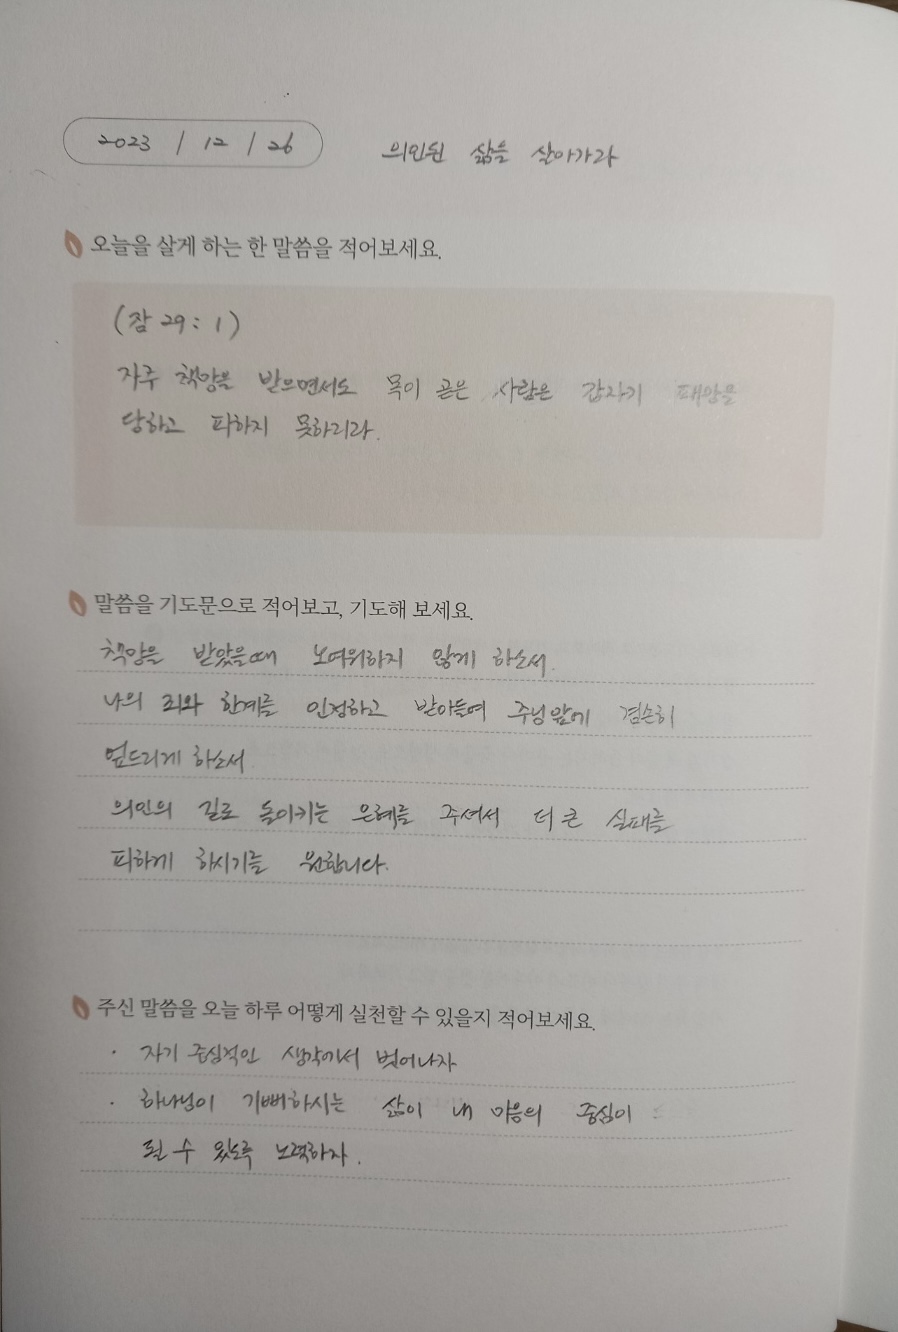 2023 / 12 / 26 의인된 삶을 살아가라
오늘을 살게 하는 한 말씀을 적어보세요.
(잠 29:1)
자주 책망을 받으면서도 목이 곧은 사람은 갑자기 패망을
당하고 피하지 못하리라.
말씀을 기도문으로 적어보고, 기도해 보세요.
책망을 받았을때 노여워하지 않게 하소서.
나의 죄와 한계를 인정하고 받아들여 주님앞에 겸손히
엎드리게 하소서
의인의 길로 돌이키는 은혜를 주셔서 더 큰 실패를
피하게 하시기를 원합니다.
주신 말씀을 오늘 하루 어떻게 실천할 수 있을지 적어보세요.
· 자기 중심적인 생각에서 벗어나자
· 하나님이 기뻐하시는 삶이 내 마음의 중심이
될 수 있도록 노력하자.